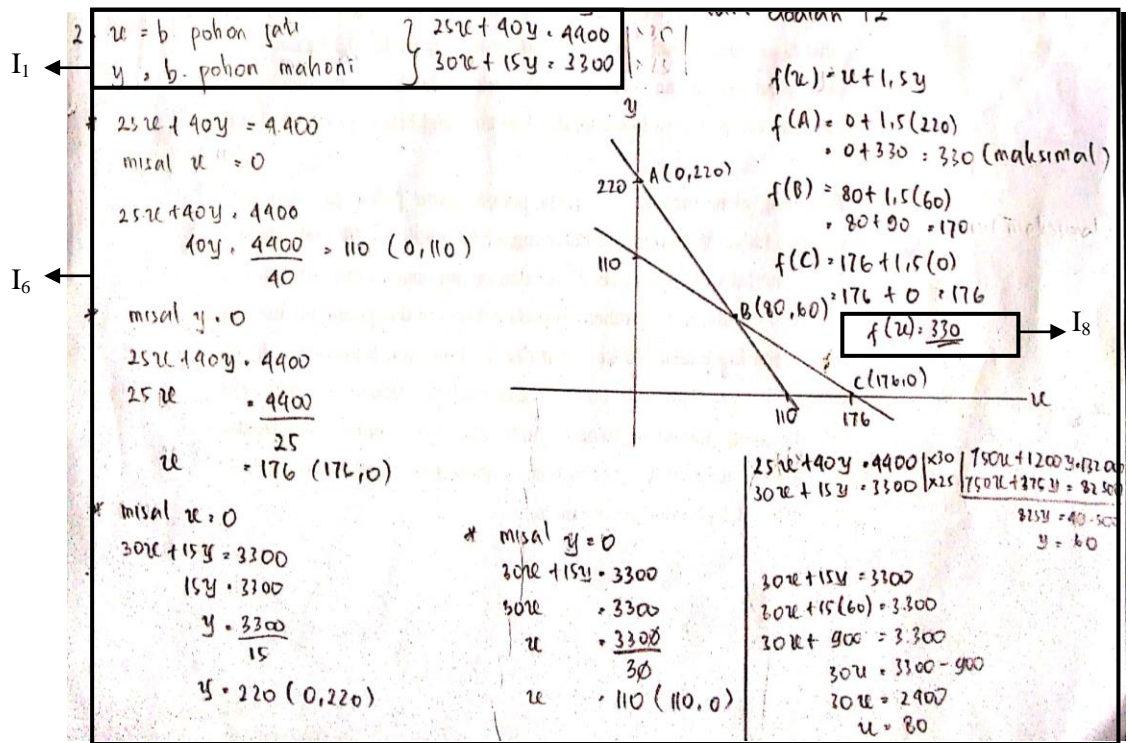 adalah 12
I1
2. x = b. pohon jati
y = b. pohon mahoni
25x + 40y = 4400 | ×30 |
30x + 15y = 3300
* 25x + 40y = 4.400
misal x = 0
25x + 40y = 4400
40y = 4400 / 40 = 110 (0,110)
I6
* misal y = 0
25x + 40y = 4400
25x = 4400 / 25
x = 176 (176,0)
* misal x = 0
30x + 15y = 3300
15y = 3300
y = 3300 / 15
y = 220 (0,220)
* misal y = 0
30x + 15y = 3300
30x = 3300
x = 3300 / 30
x = 110 (110,0)
y
220
A(0,220)
110
B(80,60)
C(176,0)
110
176
x
f(x) = x + 1,5y
f(A) = 0 + 1,5(220)
= 0 + 330 = 330 (maksimal)
f(B) = 80 + 1,5(60)
= 80 + 90 = 170
f(C) = 176 + 1,5(0)
= 176 + 0 = 176
f(x) = 330
I8
25x + 40y = 4400 | ×30 | 750x + 1200y = 132000
30x + 15y = 3300 | ×25 | 750x + 375y = 82500
825y = 49.500
y = 60
30x + 15y = 3300
30x + 15(60) = 3.300
30x + 900 = 3.300
30x = 3300 - 900
30x = 2400
x = 80